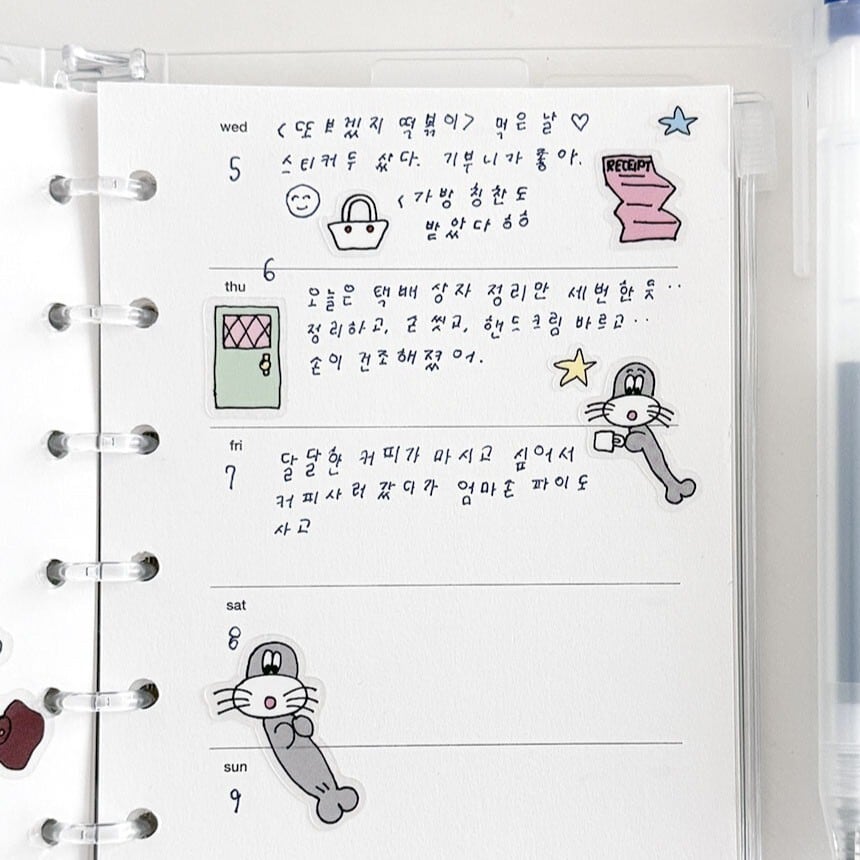 wed
<또보겠지 떡볶이> 먹은 날 ♡
5
스티커두 샀다. 기부니가 좋아.
RECEIPT
<가방 칭찬도
받았다 ㅎㅎ
6
thu
오늘은 택배 상자 정리만 세번한듯..
정리하고, 손 씻고, 핸드크림 바르고..
손이 건조해졌어.
fri
7
달달한 커피가 마시고 싶어서
커피사러 갔다가 엄마손 파이도
사고
sat
8
sun
9